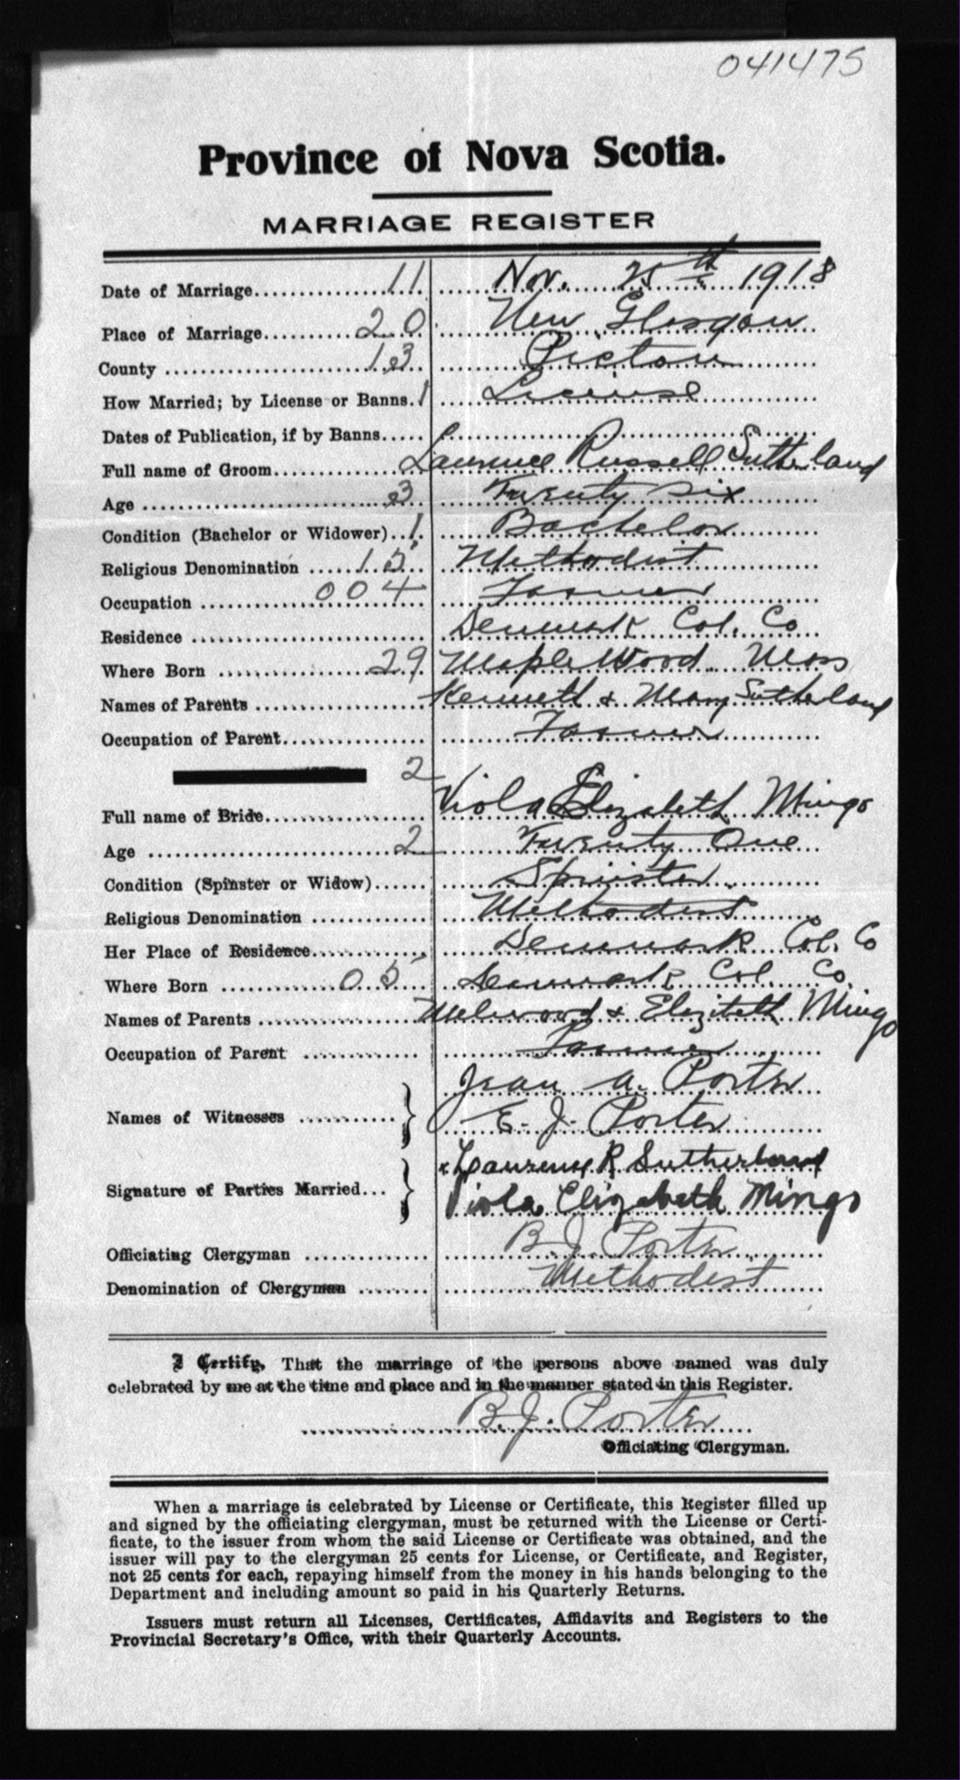 041475
Province of Nova Scotia.
MARRIAGE REGISTER
Date of Marriage 11 Nov. 25th 1918
Place of Marriage 20 New Glasgow
County 13 Pictou
How Married; by License or Banns. 1 License
Dates of Publication, if by Banns
Full name of Groom Laurence Russell Sutherland
Age 3 Twenty six
Condition (Bachelor or Widower) 1 Bachelor
Religious Denomination 15 Methodist
Occupation 004 Farmer
Residence Denmark Col. Co
Where Born 29 Maplewood Mass
Names of Parents Kenneth & Mary Sutherland
Occupation of Parent Farmer
2
Full name of Bride Viola Elizabeth Mingo
Age 2 Twenty One
Condition (Spinster or Widow) Spinster
Religious Denomination Methodist
Her Place of Residence Denmark Col. Co
Where Born 05 Denmark Col. Co.
Names of Parents & Elizabeth Mingo
Occupation of Parent Farmer
Jean A. Porter
Names of Witnesses E. J. Porter
x Laurence R Sutherland
Signature of Parties Married Viola Elizabeth Mingo
Officiating Clergyman B. J. Porter
Denomination of Clergyman Methodist
I Certify, That the marriage of the persons above named was duly
celebrated by me at the time and place and in the manner stated in this Register.
B. J. Porter
Officiating Clergyman.
When a marriage is celebrated by License or Certificate, this Register filled up
and signed by the officiating clergyman, must be returned with the License or Certi-
ficate, to the issuer from whom the said License or Certificate was obtained, and the
issuer will pay to the clergyman 25 cents for License, or Certificate, and Register,
not 25 cents for each, repaying himself from the money in his hands belonging to the
Department and including amount so paid in his Quarterly Returns.
Issuers must return all Licenses, Certificates, Affidavits and Registers to the
Provincial Secretary's Office, with their Quarterly Accounts.